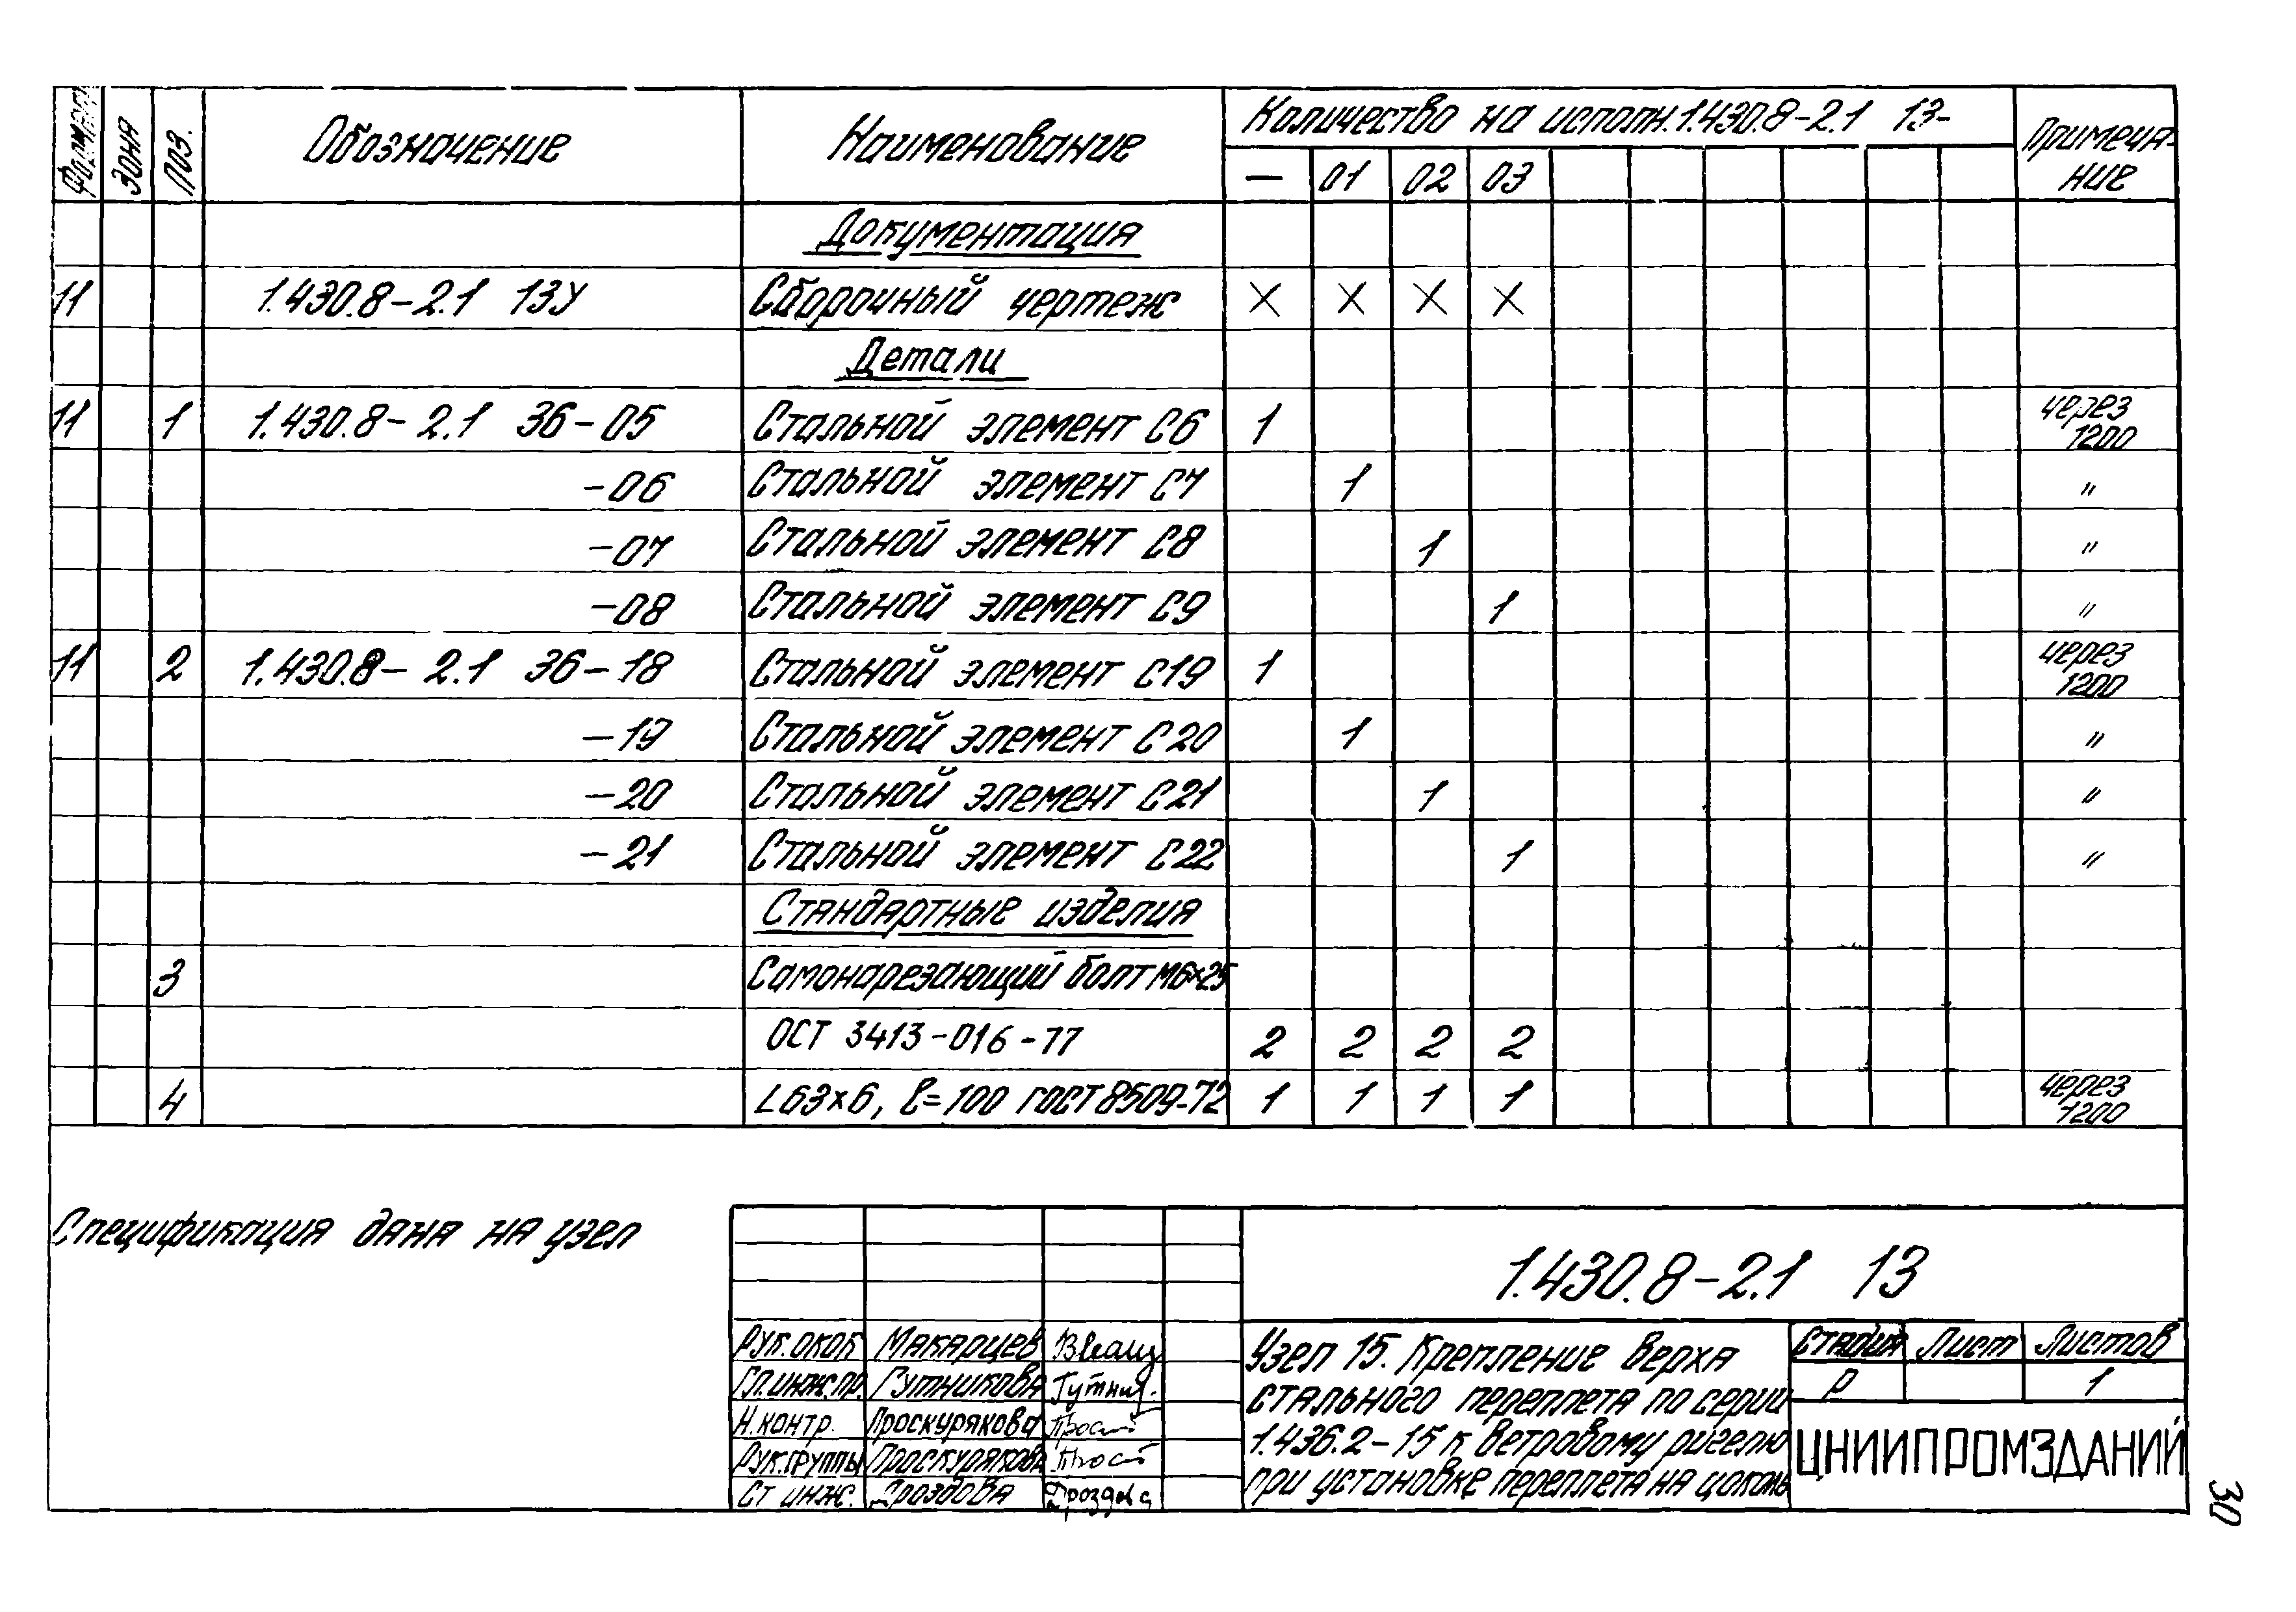 Формат Зона Поз. Обозначение Наименование Количество на исполн. 1.430.8-2.1 13- Примеча-
ние
— 01 02 03
Документация
11 1.430.8-2.1 13У Сборочный чертеж X X X X
Детали
11 1 1.430.8-2.1 36-05 Стальной элемент С6 1 через
1200
-06 Стальной элемент С7 1 "
-07 Стальной элемент С8 1 "
-08 Стальной элемент С9 1 "
11 2 1.430.8-2.1 36-18 Стальной элемент С19 1 через
1200
-19 Стальной элемент С20 1 "
-20 Стальной элемент С21 1 "
-21 Стальной элемент С22 1 "
Стандартные изделия
3 Самонарезающий болт М6х25
ОСТ 3413-016-77 2 2 2 2
4 L63х6, ℓ=100 ГОСТ 8509-72 1 1 1 1 через
1200
Спецификация дана на узел
1.430.8-2.1 13
Рук. окоб Макарцев
Гл.инж.пр. Гутникова Гутник.
Н.контр. Проскурякова
Рук.группы Проскурякова
Ст инж. Дроздова Дроздова
Узел 15. Крепление верха
стального переплета по серии
1.436.2-15 к ветровому ригелю
при установке переплета на цоколь
Стадия Лист Листов
Р 1
ЦНИИПРОМЗДАНИЙ
30